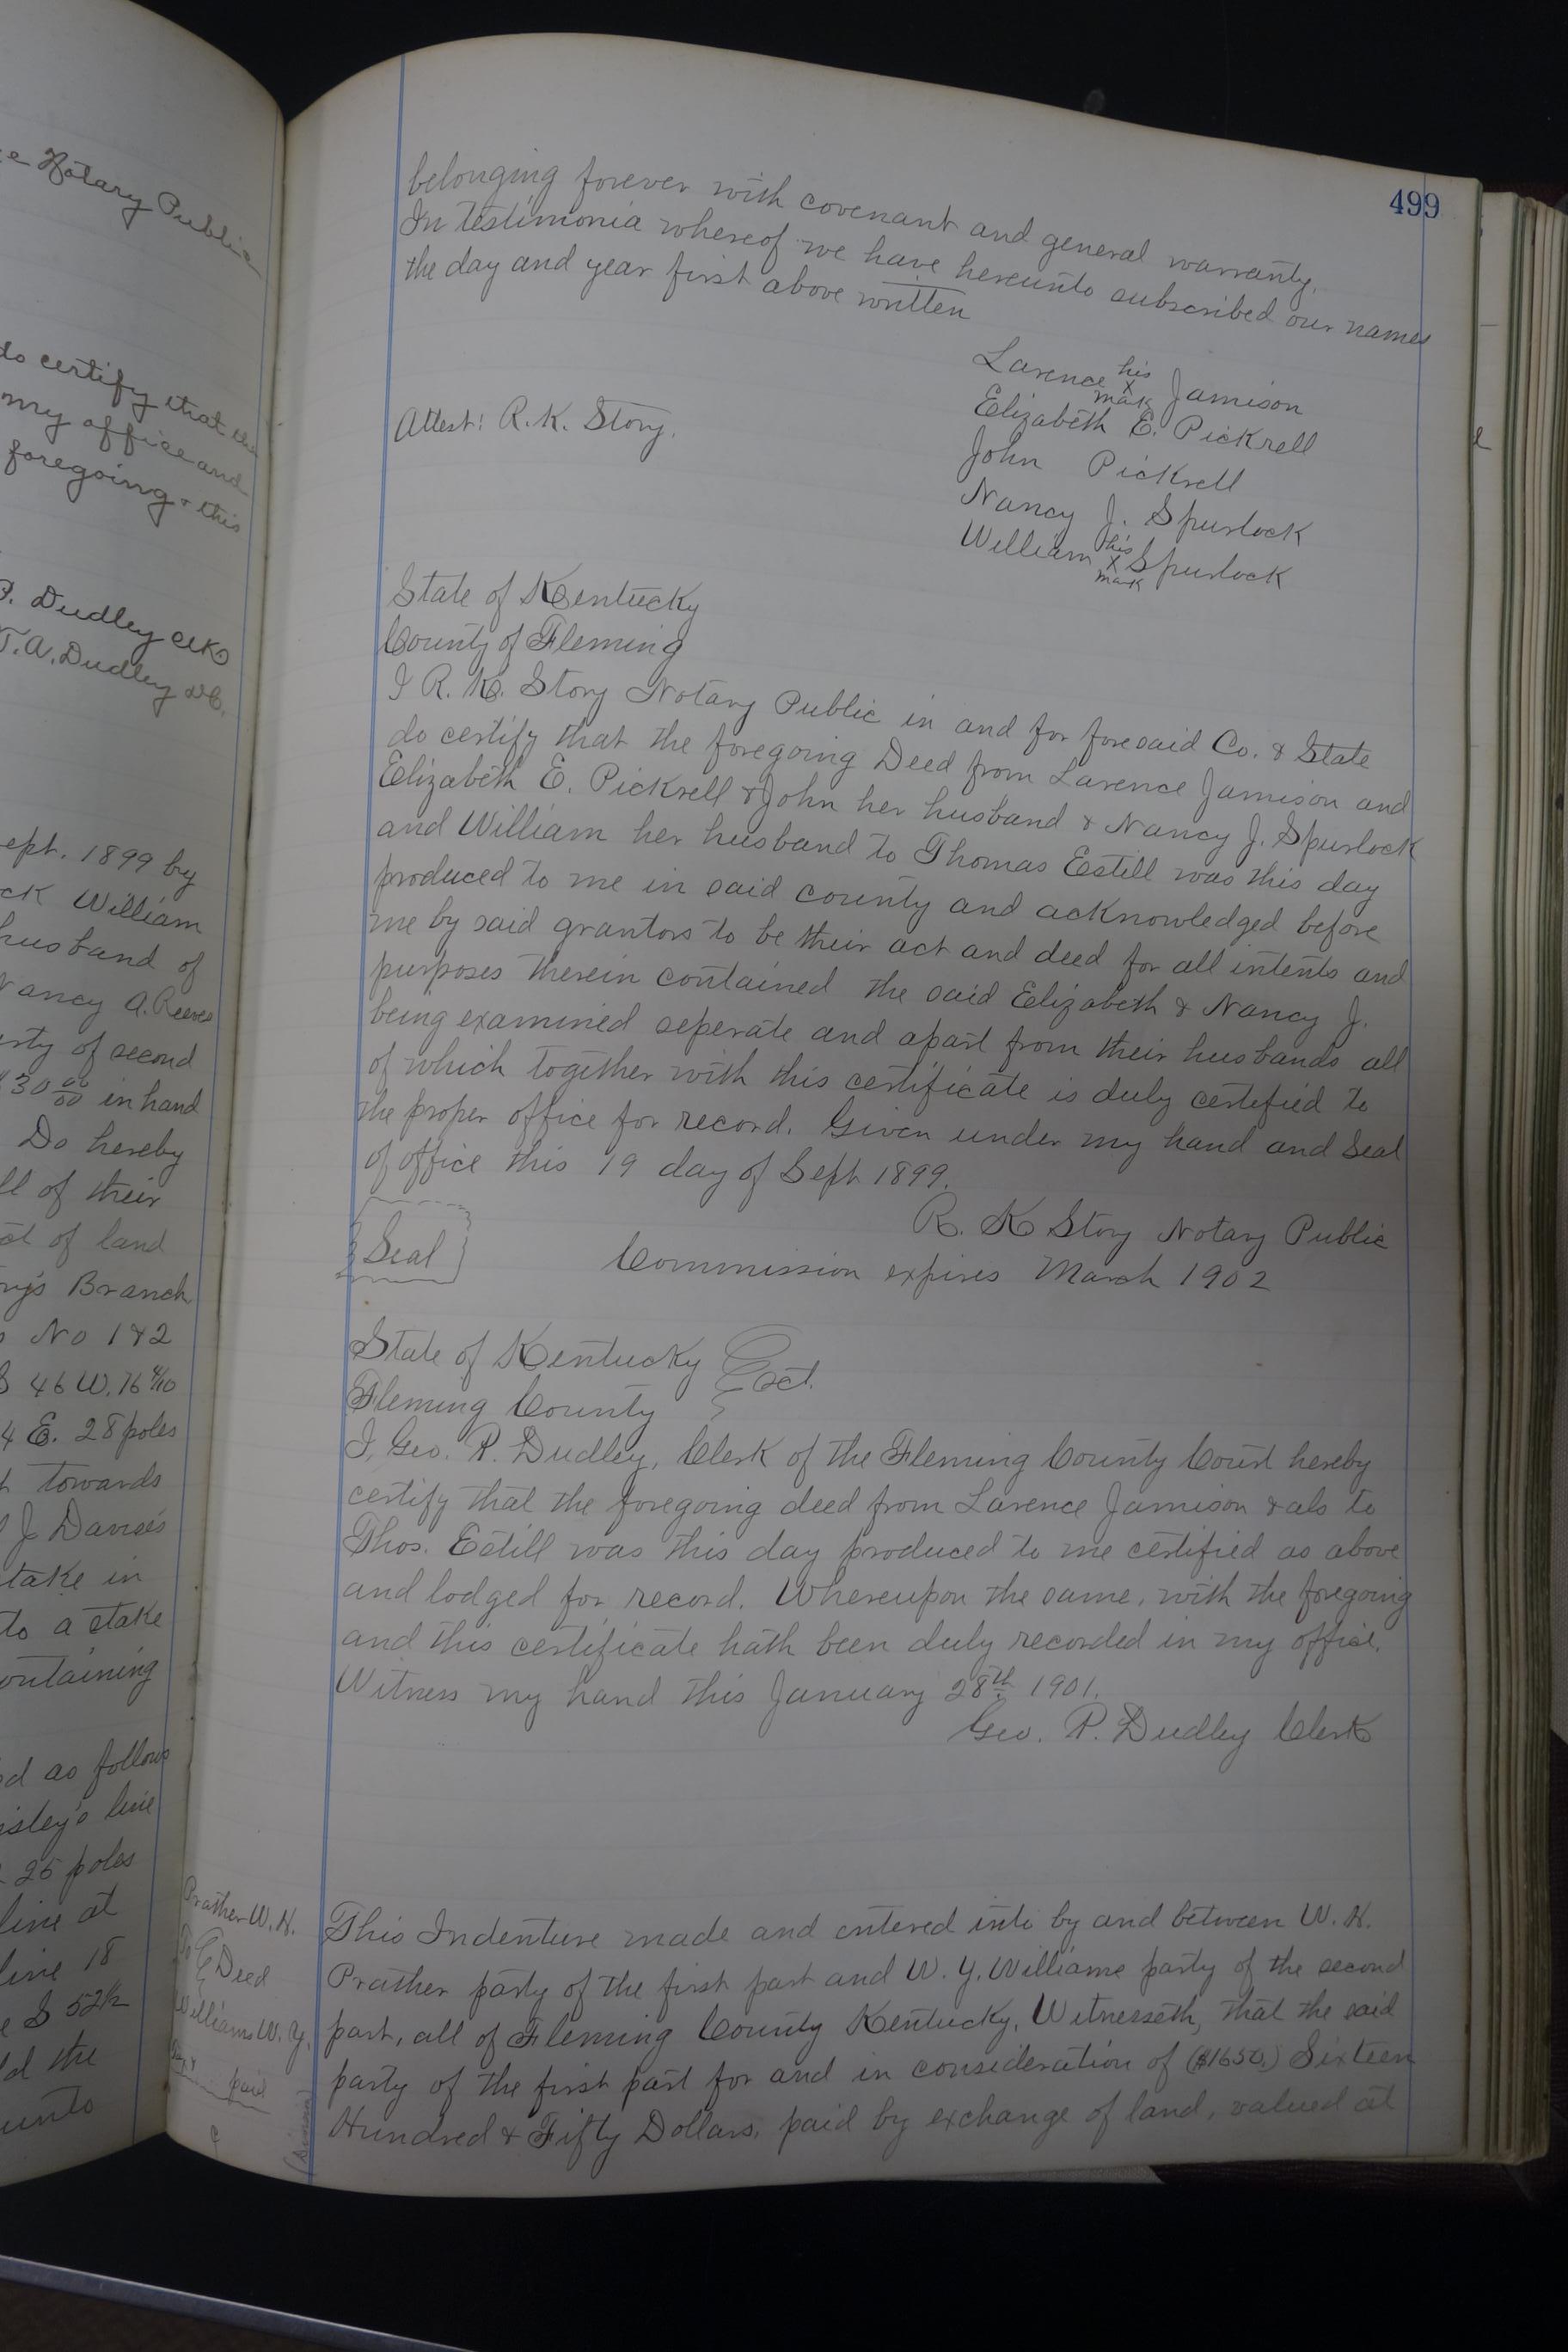 e Notary Public
do certify that the
my office and
foregoing & this
P. Dudley Clk
T. A. Dudley D.C.
Sept. 1899 by
ck William
husband of
Nancy A. Reeves
rty of second
$30 00/00 in hand
Do hereby
ll of their
ct of land
Branch
No 1 & 2
S 46 W. 76 4/10
4 E. 28 poles
t towards
J Davis's
stake in
to a stake
containing
d as follows
line
25 poles
line at
line 18
e S 52 1/2
ld the
unto
499
belonging forever with covenant and general warranty.
In testimonia whereof we have hereunto subscribed our names
the day and year first above written
Larence his x mark Jamison
Attest: R. K. Story.
Elizabeth E. Pickrell
John Pickrell
Nancy J. Spurlock
William his x mark Spurlock
State of Kentucky
County of Fleming
I R. K. Story Notary Public in and for foresaid Co. & State
do certify that the foregoing Deed from Larence Jamison and
Elizabeth E. Pickrell & John her husband & Nancy J. Spurlock
and William her husband to Thomas Estill was this day
produced to me in said county and acknowledged before
me by said grantors to be their act and deed for all intents and
purposes therein contained the said Elizabeth & Nancy J.
being examined seperate and apart from their husbands all
of which together with this certificate is duly certified to
the proper office for record. Given under my hand and Seal
of office this 19 day of Sept 1899.
R. K Story Notary Public
Seal
Commission expires March 1902
State of Kentucky
Sct.
Fleming County
I, Geo. R. Dudley, Clerk of the Fleming County Court hereby
certify that the foregoing deed from Larence Jamison & als to
Thos. Estill was this day produced to me certified as above
and lodged for record. Whereupon the same, with the foregoing
and this certificate hath been duly recorded in my office.
Witness my hand this January 28th 1901.
Geo. R. Dudley Clerk
Prather W. H.
To Deed
Williams W. Y.
paid
This Indenture made and entered into by and between W. H.
Prather party of the first part and W. Y. Williams party of the second
part, all of Fleming County Kentucky, Witnesseth, that the said
party of the first part for and in consideration of ($1650.) Sixteen
Hundred & Fifty Dollars, paid by exchange of land, valued at